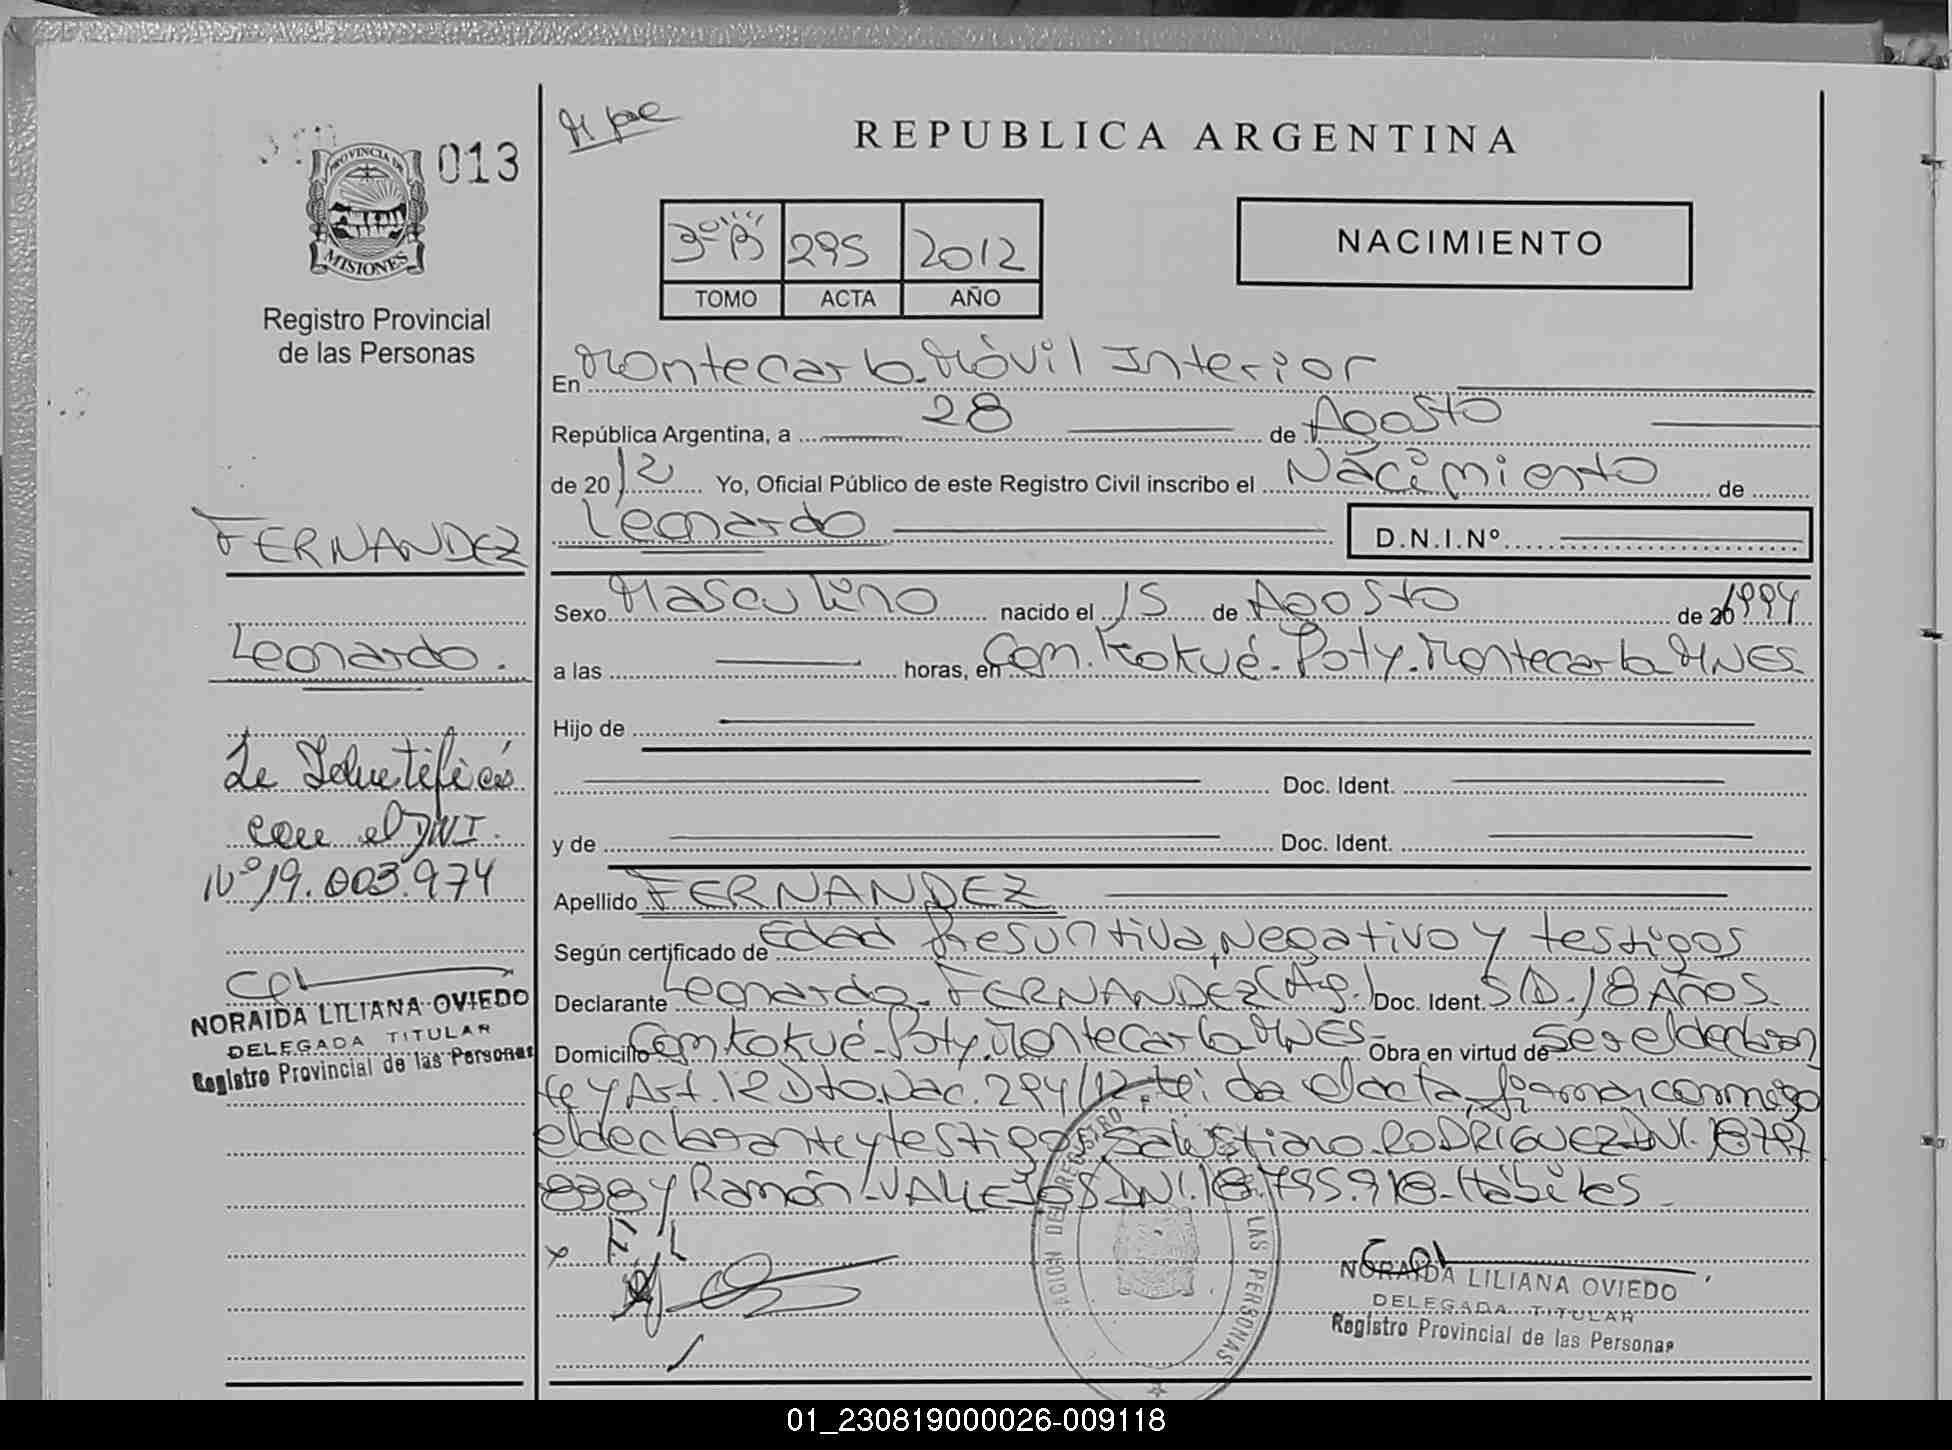 013
PROVINCIA DE
MISIONES
Registro Provincial
de las Personas
REPUBLICA ARGENTINA
3º "B" 295 2012
TOMO ACTA AÑO
NACIMIENTO
En Montecarlo. Móvil Interior
República Argentina, a 28 de Agosto
de 2012 Yo, Oficial Público de este Registro Civil inscribo el Nacimiento de
Leonardo D.N.I.Nº
Sexo Masculino nacido el 15 de Agosto de 20 1994
a las horas, en Com. Kokué-Poty. Montecarlo MNES
Hijo de
Doc. Ident.
y de Doc. Ident.
Apellido FERNANDEZ
Según certificado de Edad Presuntiva, Negativo y testigos
Declarante Leonardo FERNANDEZ (Ag.) Doc. Ident. S/D. 18 Años
Domicilio Com Kokué-Poty. Montecarlo MNES- Obra en virtud de ser el declaran
te y Art. 12 Dto. Nac. 294/12 Leída el acta, firman conmigo
el declarante y testigos Salustiano RODRIGUEZ DNI. 18797
838 y Ramón VALLEJOS DNI. 18.795.918-Hábiles
NORAIDA LILIANA OVIEDO
DELEGADA TITULAR
Registro Provincial de las Personas
LAS PERSONAS
FERNANDEZ
Leonardo.
Se Identificó
con el DNI.
Nº 19.003.974
NORAIDA LILIANA OVIEDO
DELEGADA TITULAR
Registro Provincial de las Personas
01_230819000026-009118